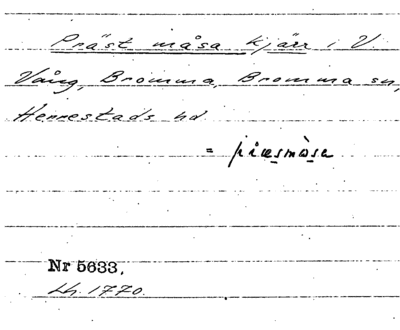 Präst måsa kjärr i V.
Vång, Bromma, Bromma sn,
Herrestads hd
= præsmåsa
Nr 5633,
Lh. 1770.